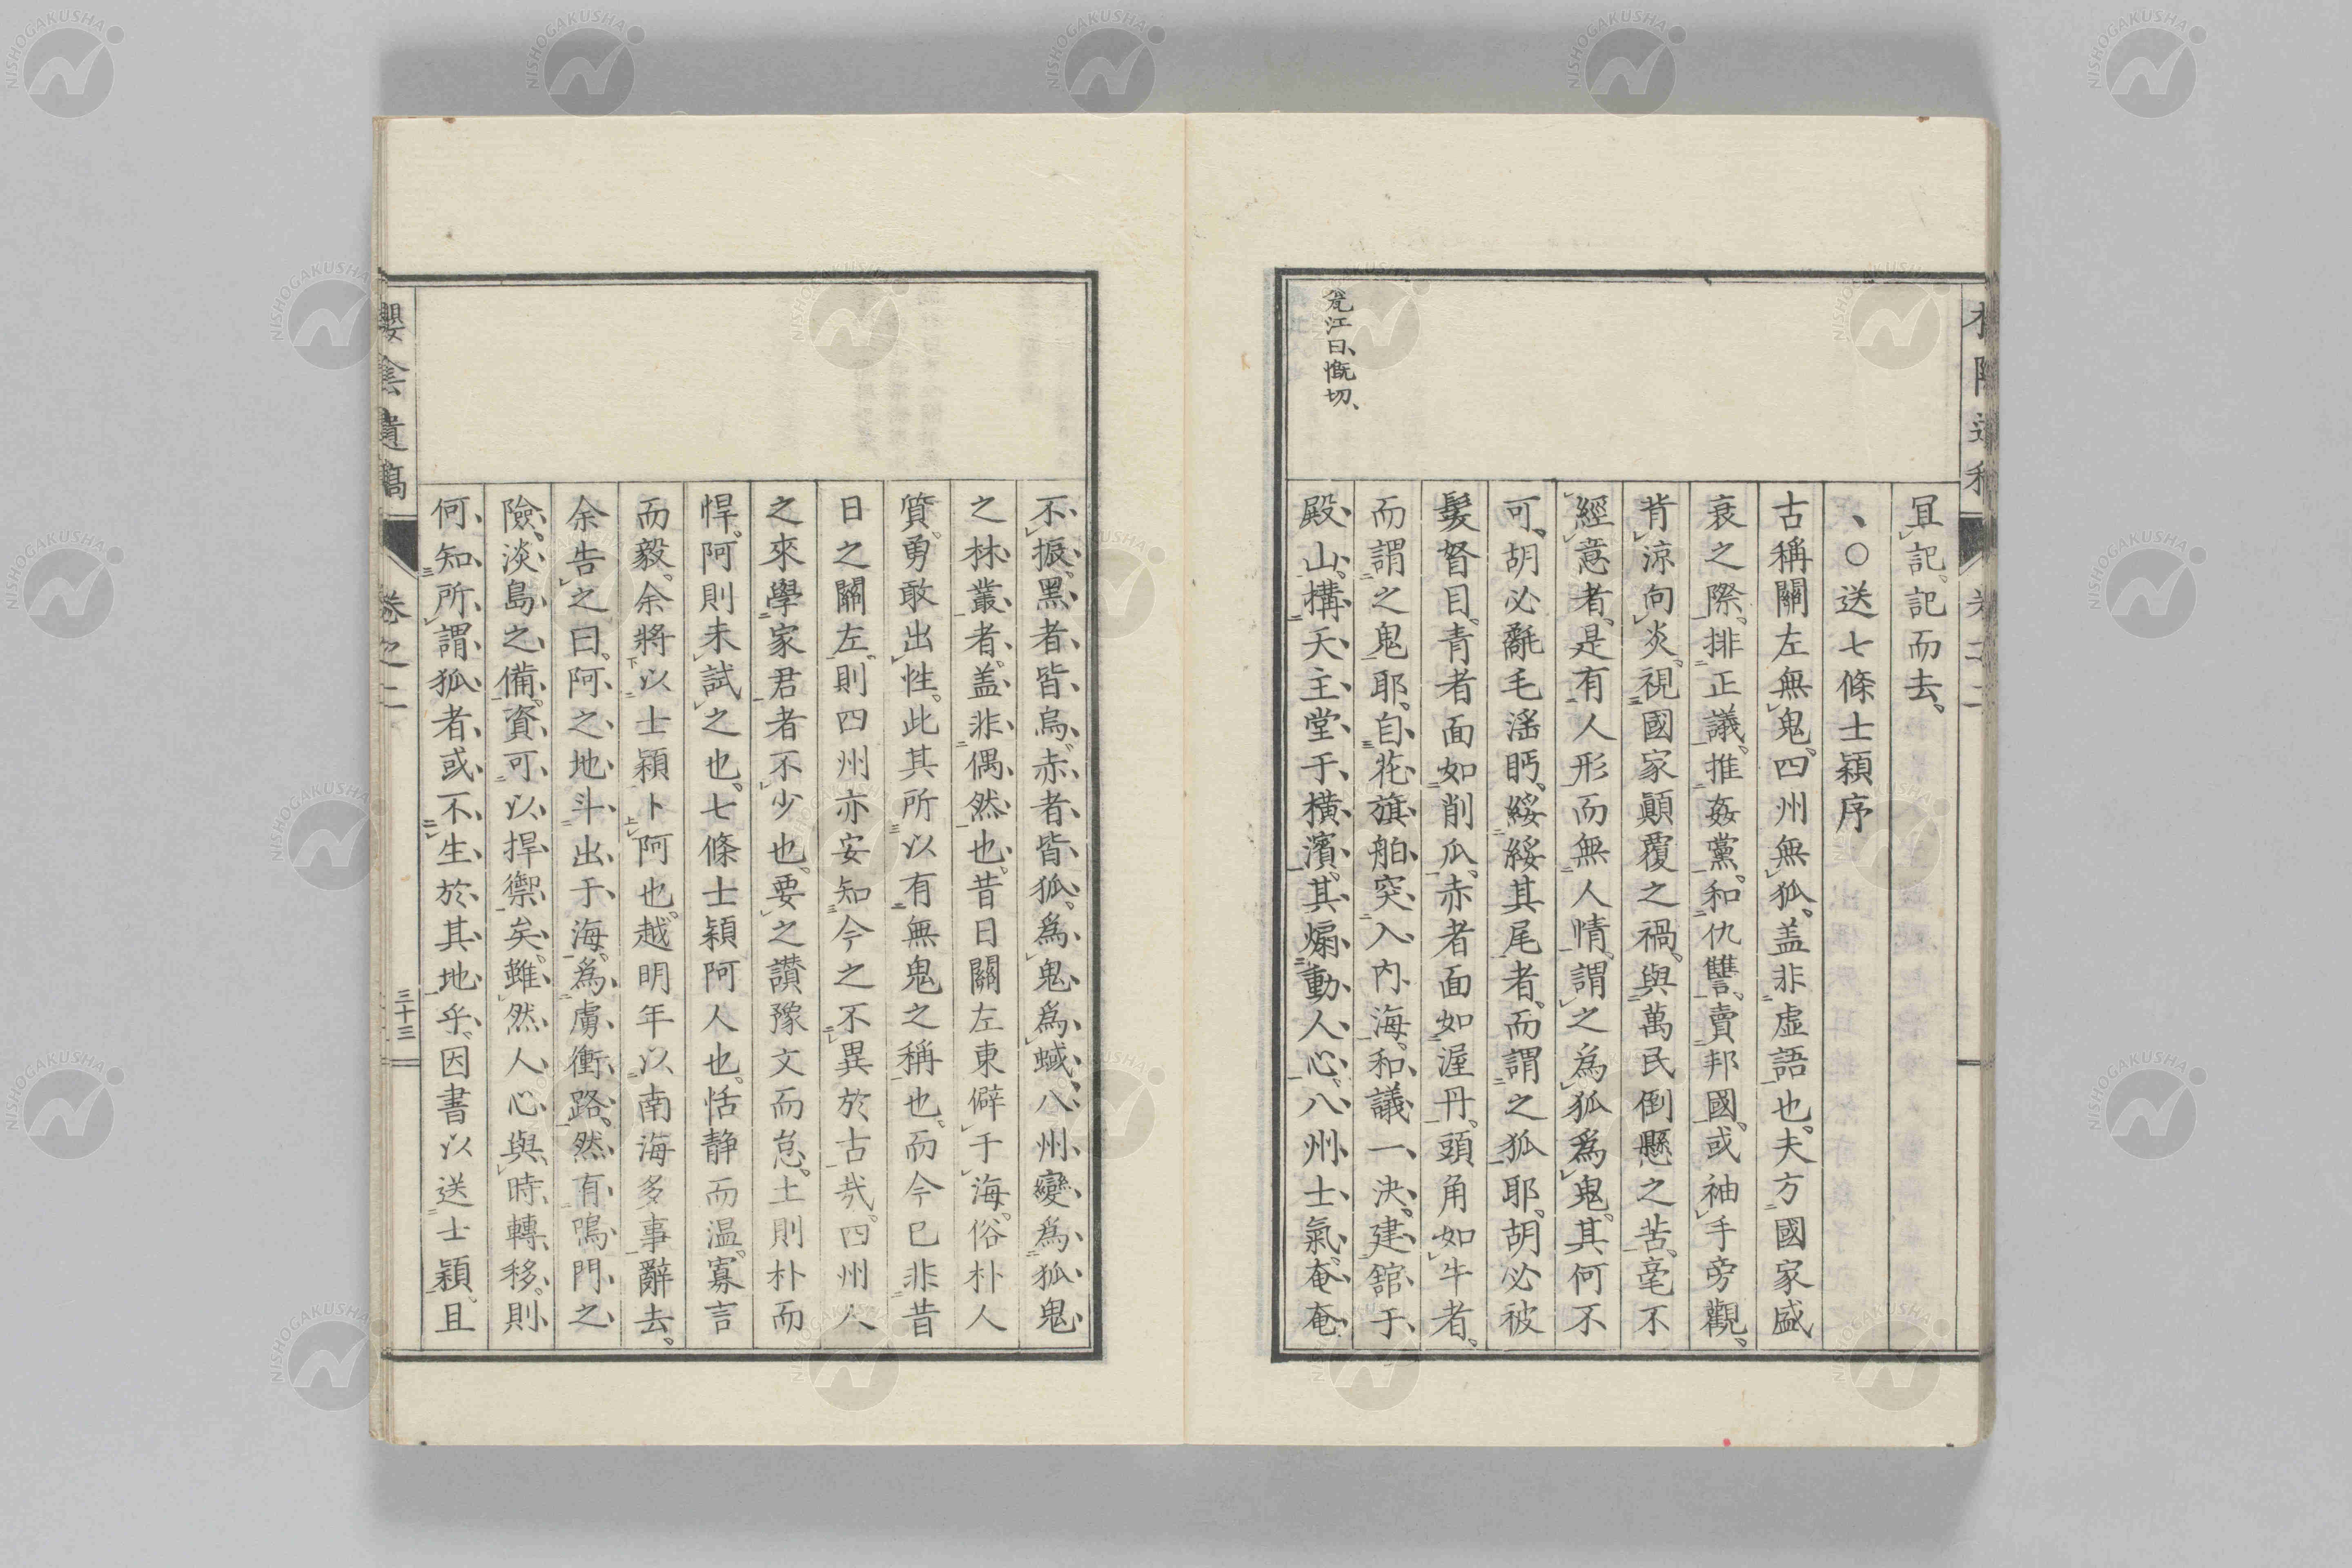 冝記。記而去。
、○送七條士穎序
古稱關左無鬼。四州無狐。盖非虛語也。夫方國家盛
衰之際。排正議。推姦黨。和仇讐。賣邦國。或袖手旁觀。
背涼向炎。視國家顚覆之禍。與萬民倒懸之苦。毫不
經意者。是有人形而無人情。謂之爲狐爲鬼。其何不
可。胡必氄毛滛眄。綏綏其尾者。而謂之狐耶。胡必被
髮督目。青者面如削瓜。赤者面如渥丹。頭角如牛者。
而謂之鬼耶。自花旗舶突入內海。和議一決。建舘于
殿山。構天主堂于横濱。其煽動人心。八州士氣。奄奄
不振。黑者皆烏。赤者皆狐。爲鬼爲蜮。八州變爲狐鬼
之林叢者。盖非偶然也。昔日關左東僻于海。俗朴人
質。勇敢出性。此其所以有無鬼之稱也。而今已非昔
日之關左。則四州亦安知今之不異於古哉。四州人
之來學家君者不少也。要之讃豫文而怠。土則朴而
悍。阿則未試之也。七條士穎阿人也。恬静而温。寡言
而毅。余將以士穎卜阿也。越明年以南海多事辭去。
余告之曰。阿之地斗出于海。爲虜衝路。然有鳴門之
險。淡島之備。資可以捍禦矣。雖然人心與時轉移。則
何知所謂狐者或不生於其地乎。因書以送士穎。且
江曰、慨切、
卷之二
三十三
NISHOGAKUSHA